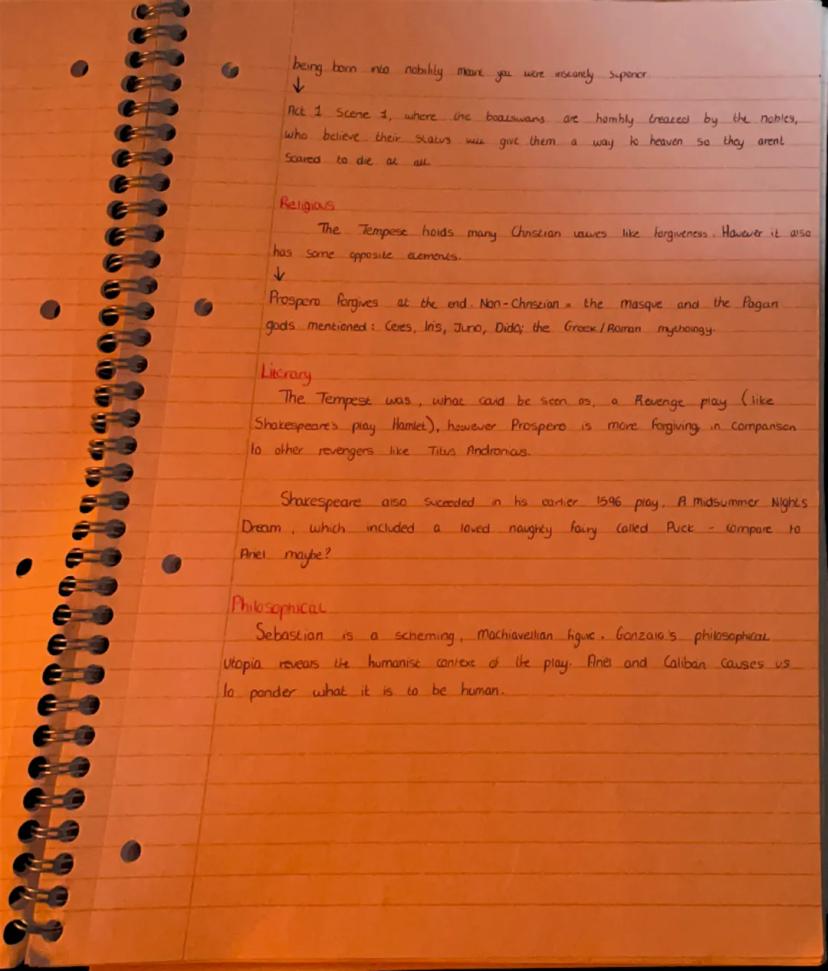 being born into nobility meant you were insanely superior.
↓
Act 1 Scene 1, where the boatswans are horribly treated by the nobles,
who believe their status will give them a way to heaven so they arent
scared to die at all
Religious
The Tempest holds many Christian values like forgiveness. However it also
has some opposite elements.
↓
Prospero forgives at the end. Non-Christian = the masque and the Pagan
gods mentioned: Ceres, Iris, Juno, Dido; the Greek/Roman mythology.
Literary
The Tempest was, what could be seen as, a Revenge play (like
Shakespeare's play Hamlet), however Prospero is more forgiving in comparison
to other revengers like Titus Andronicus.
Shakespeare also suceeded in his earlier 1596 play, A midsummer Nights
Dream, which included a loved naughty fairy called Puck - compare to
Ariel maybe?
Philosophical
Sebastian is a scheming, Machiavellian figure. Gonzalo's philosophical
utopia reveals the humanist context of the play. Ariel and Caliban causes us
to ponder what it is to be human.